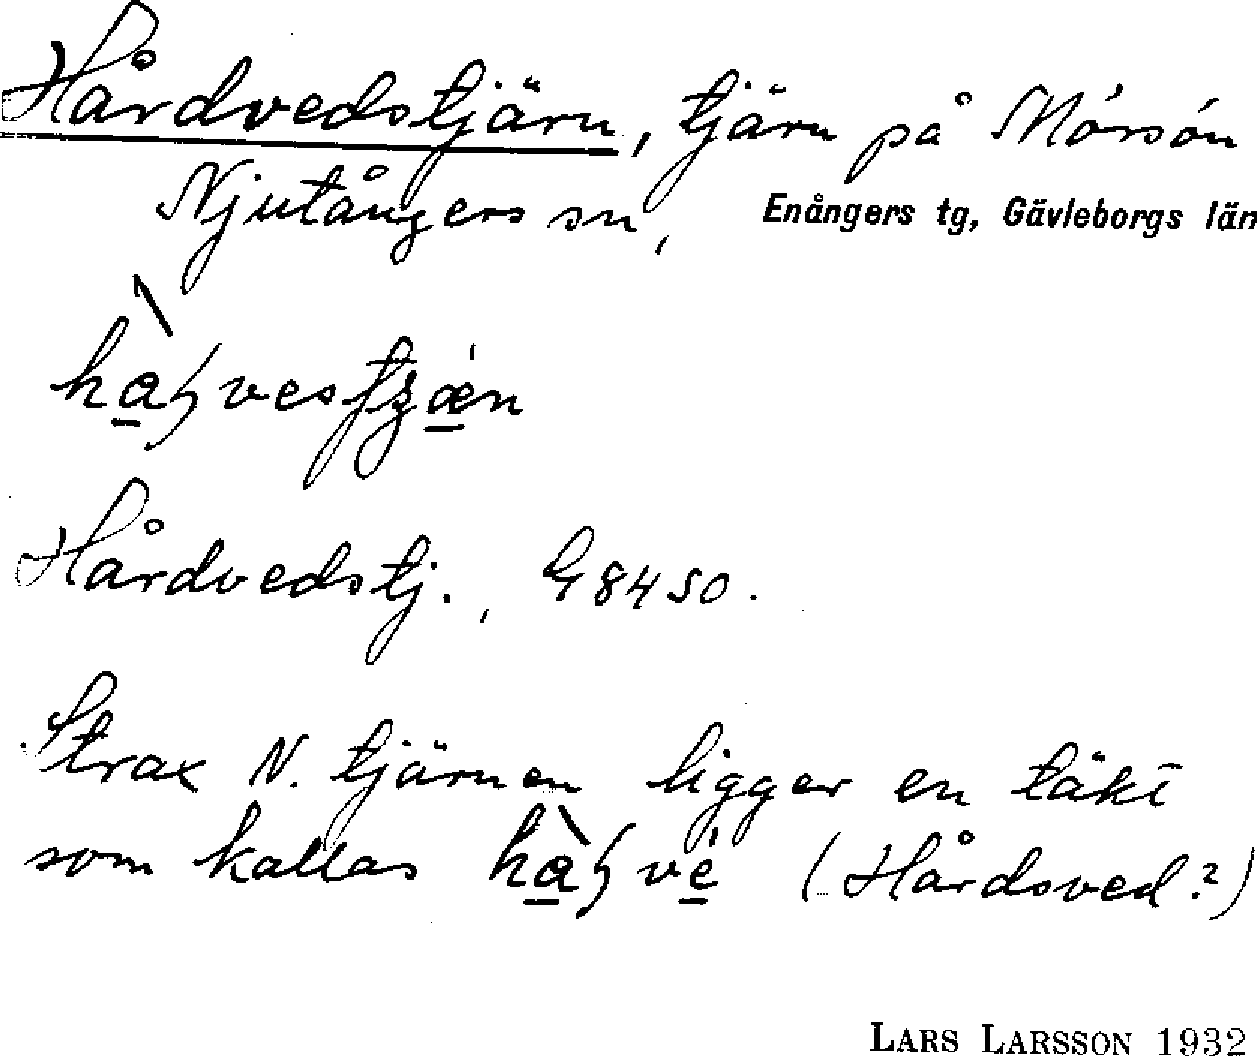 Hårdvedstjärn, tjärn på Mörsön
Njutångers sn, Enångers tg, Gävleborgs län
Hårdvedstj., G 84 SO.
Strax N. tjärnen ligger en täkt
som kallas (Hårdsved?)
LARS LARSSON 1932